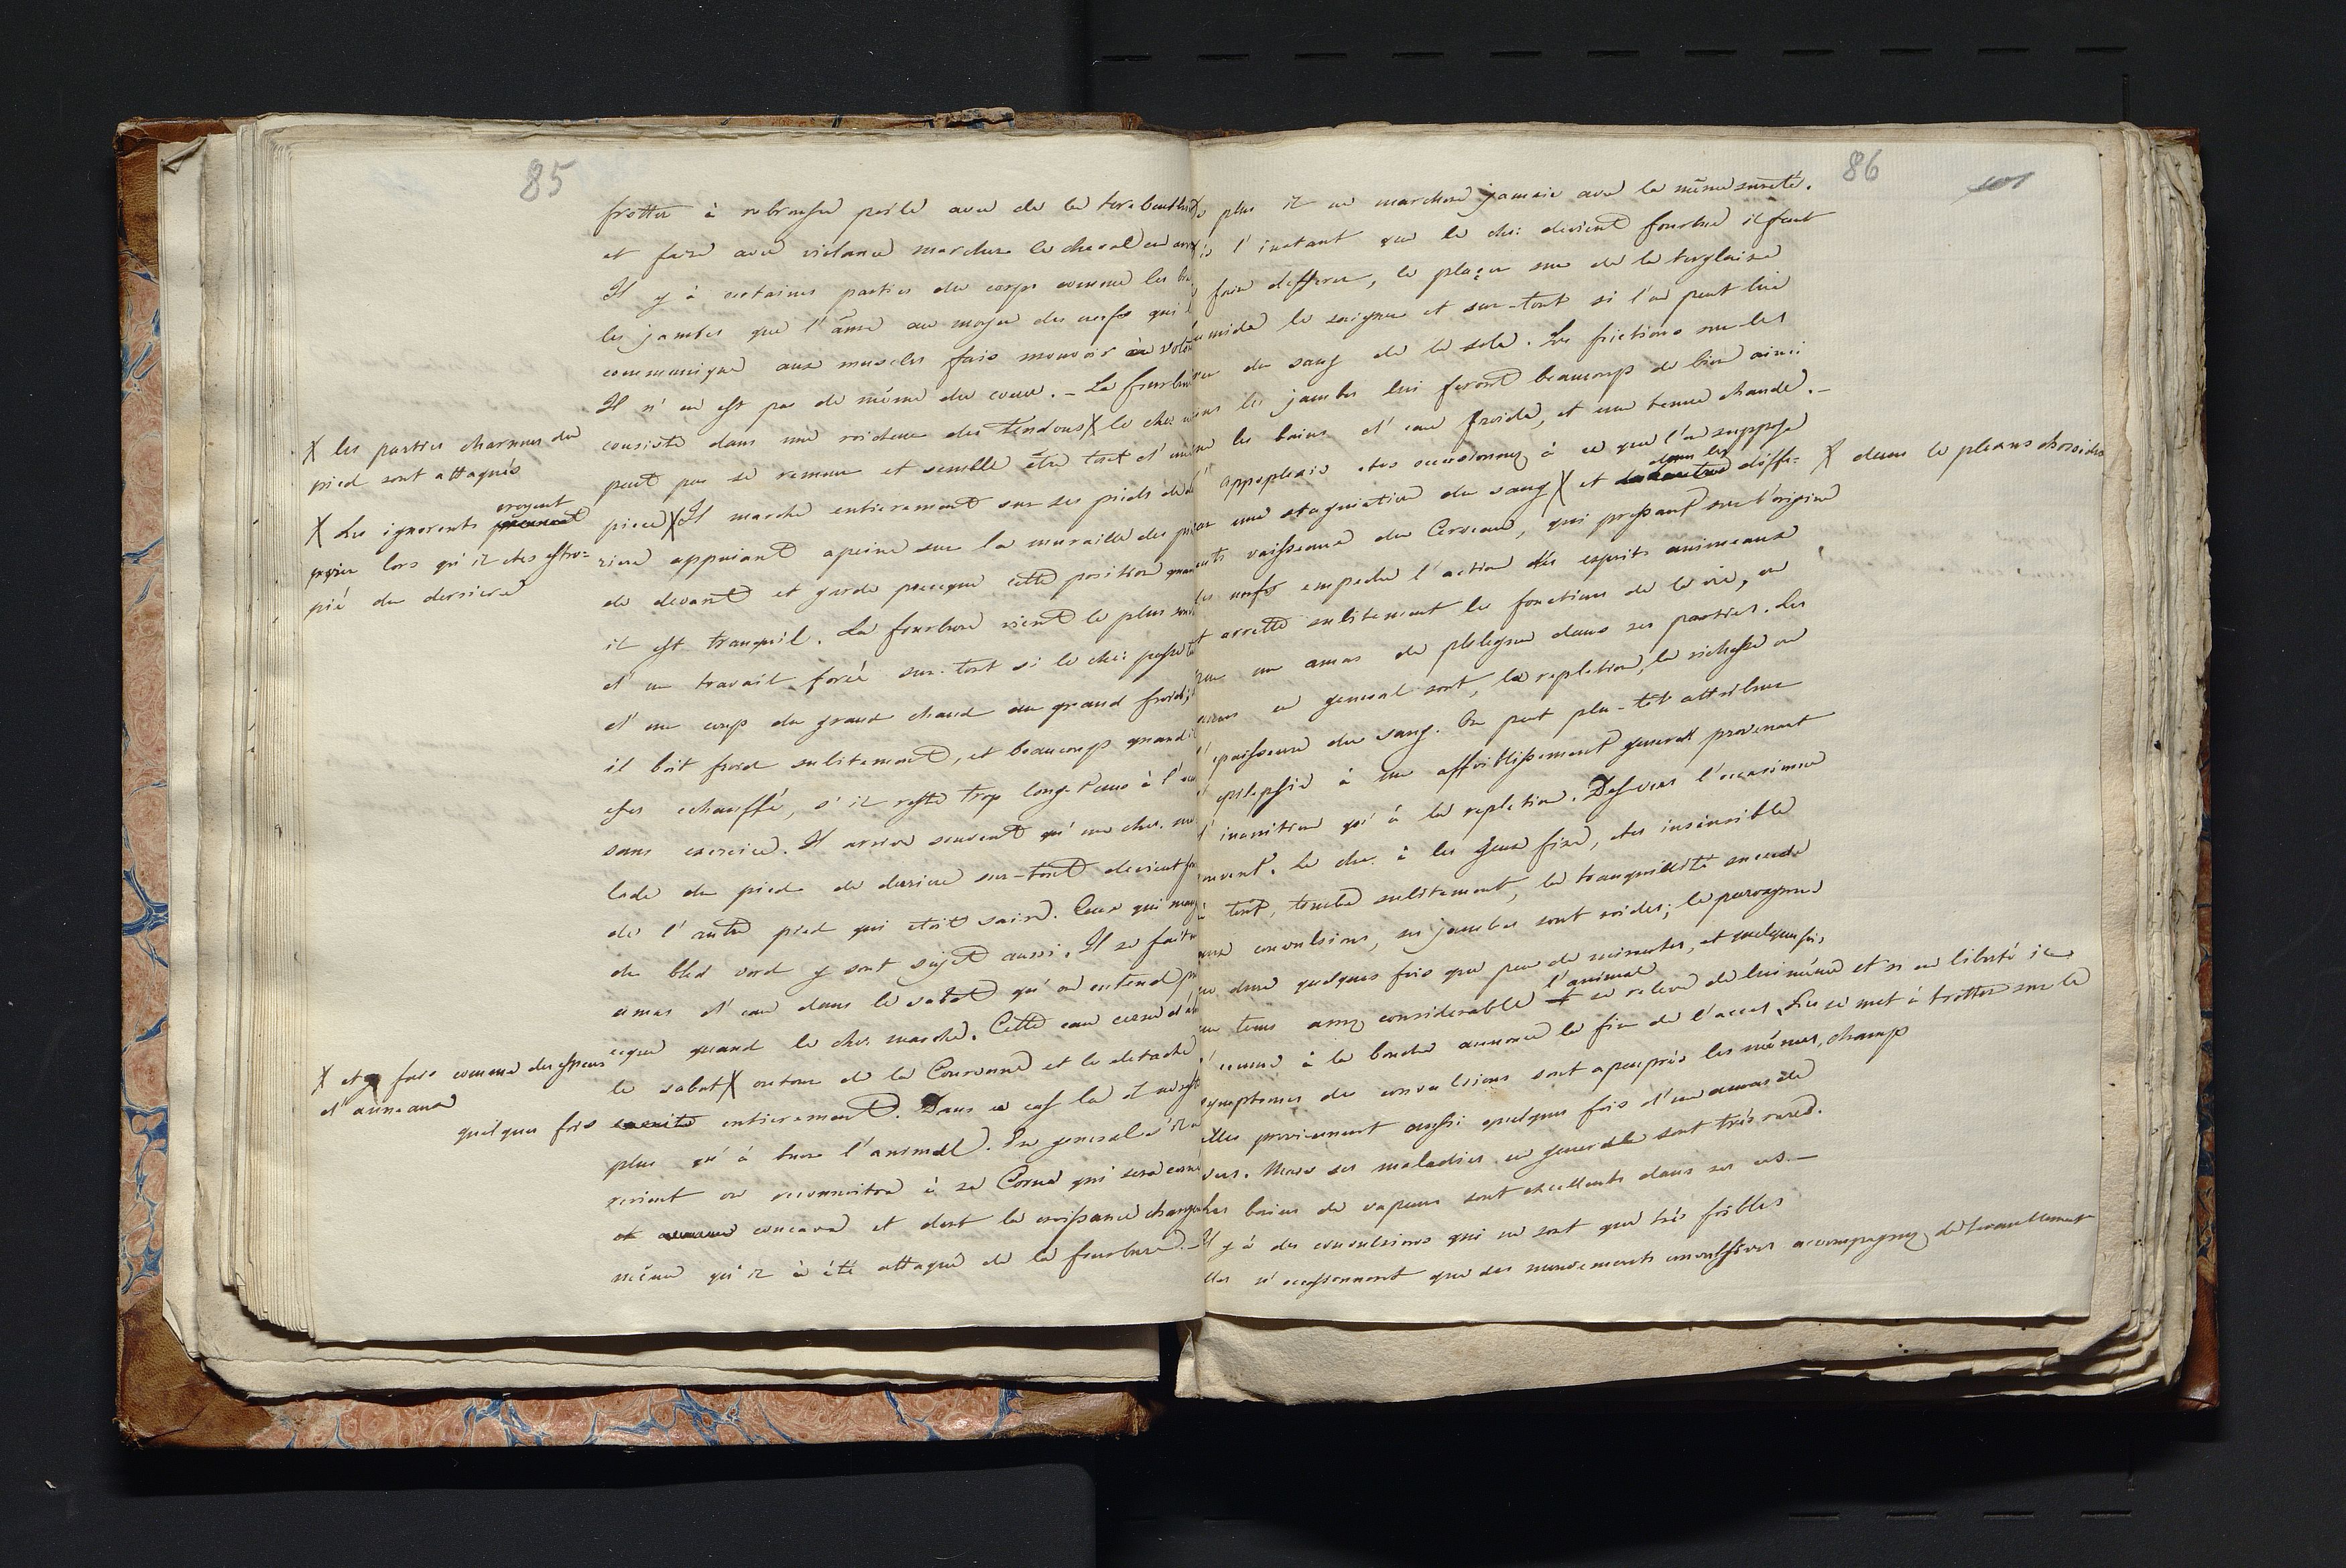 85
frotter à rebrousse poile avec de la terebenth
et faire avec violance marcher le cheval en arr
Il y à certaines parties du corps comme les br
les jambes que l'âme au moyen des nerfs qui
communique aux muscles fais mouvoir à volon
Il n'en est pas de même du coeur. - La fourbur
consiste dans une roideur des tendons X le chev n
peut pas se remuer et semble être tout d'une
piece X Il marche entierement sur ses pieds de de
riere appuiant apeine sur la muraille des pi
de devant et garde presque cette position quan
il est tranquil. La fourbure vient le plus souv
d'un travail forcé sur-tout si le chev: passe t
d'un coup du grand chaud au grand froid; s
il boit froid subitement, et beaucoup quand il
est echauffé, s'il reste trop long-tems à l'ecu
sans exercice. Il arrive souvent qu'un chev. ma
lade du pied de deriere sur-tout devient fo
de l'autre pied qui etoit saine. Ceux qui mang
du bled verd y sont sujet aussi. Il se fait u
amas d'eau dans le sabot qu'on entend p
cque quand le chev marche. Cette eau
le sabot X autour de la Couronne et le detache
quelques fois entierement. Dans ce cas la il ne reste
plus qu'à tuer l'animal. En general s'il
revient on reconnoitra à sa Corne qui sera
concave et dont la croissance change
même qu'il à été attaqué de la fourbure. -
X les parties charnues du
pied sont attaquées
X Les ignorents croyent
lors qu'il est estro=
pié du derriere
X et y fais comme des especes
d'anneaux
86
101
plus il ne marchera jamais avec la même sureté.
l'instant que le chev: devient fourbue il faut
faire defferer, le plaçer sur de la terglaise
umide le saigner et sur-tout si l'on peut lui
rer du sang de la sole. Les frictions sur les
les jambes lui feront beaucoup de bien ainsi
les bains d'eau froide, et une tenue chaude. -
appoplexie est occasionnez à ce que l'on suppose
une stagnation du sang X et dans les diffe=
ents vaisseaux du Cerveau, qui pressant sur l'origine
des nerfs empeche l'action des esprits animeaux
t arrette subitement les fonctions de la vie, ou
un amas de phlegme dans ses parties. Les
en general sont, la repletion, la richesse ou
epaisseur du sang. On peut plu-tôt attribuer
epilepsie à un affoiblissement general provenant
l'inanition qu'à la repletion. Des vers l'occasionne
souvent. Le chev. à les yeux fixe, est insensible
à tout, tombe subitement, la tranquilité succede
aux convulsions, ses jambes sont roides; le paroxysme
ne dure quelques fois que peu de minutes, et quelques fois
un tems assez considerable l'animal se releve de lui même et si en liberté il
l'ecume à la bouche annonce la fin de l'acces. Il se met à trotter sur le
symptomes des convulsions sont apeuprès les mêmes, champ
elles proviennent aussi quelques fois d'un amas de
vers. Mais ses maladies en generale sont très rares.
Les bains de vapeur sont excellents dans ses cas. -
Il y à des convulsions qui ne sont que très foibles
elles n'occasionnent que des mouvements convulsives accompagnez de tremblement
X dans le plexus choroides